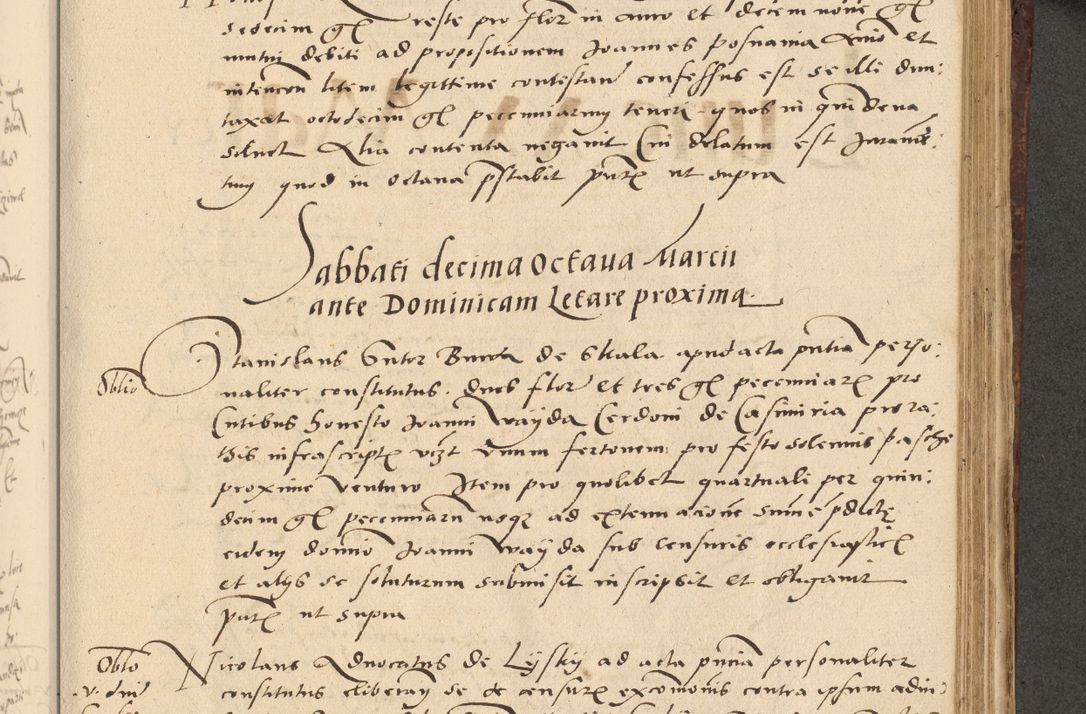 sedecim gl reste pro flor in auro et decem novē gl
mutui debiti ad propositionem Joannes Posnania Animo et
intencon litem legittime contestan confessus est se illi dun:
taxat octodecim gl pecuniarum teneri quos in quindena
solvet Alia contenta negavit Cui delatum est Jurame:
tum quod in octava pstabit pntx ut supra
Sabbati decima octava Marcii
ante Dominicam Letare proxima
Oblio
Stanislaus Sutor de Skala apud acta pntia perso:
naliter constitutus duos flor et tres gl pecuniarx pro
Cutibus honesto Joanni Wayda Cerdoni de Casimiria pro ra:
tis infrascriptx vizt Unum fertonem pro festo solennis Pasche
proxime venturo Item pro quolibet quartuali per quin:
decim gl pecuniarū usqz ad extenuacionē summe pdicte
eidem domino Joanni Wayda sub censuris ecclesiasticx
et alijs se soluturum submisit inscripsit et obligavit
pntx ut supra
Oblo
v. dni
Nicolaus Advocatus de Lyssky ad acta pncia personaliter
constitutus eliberan se de censurx excōmonis contra ipsum